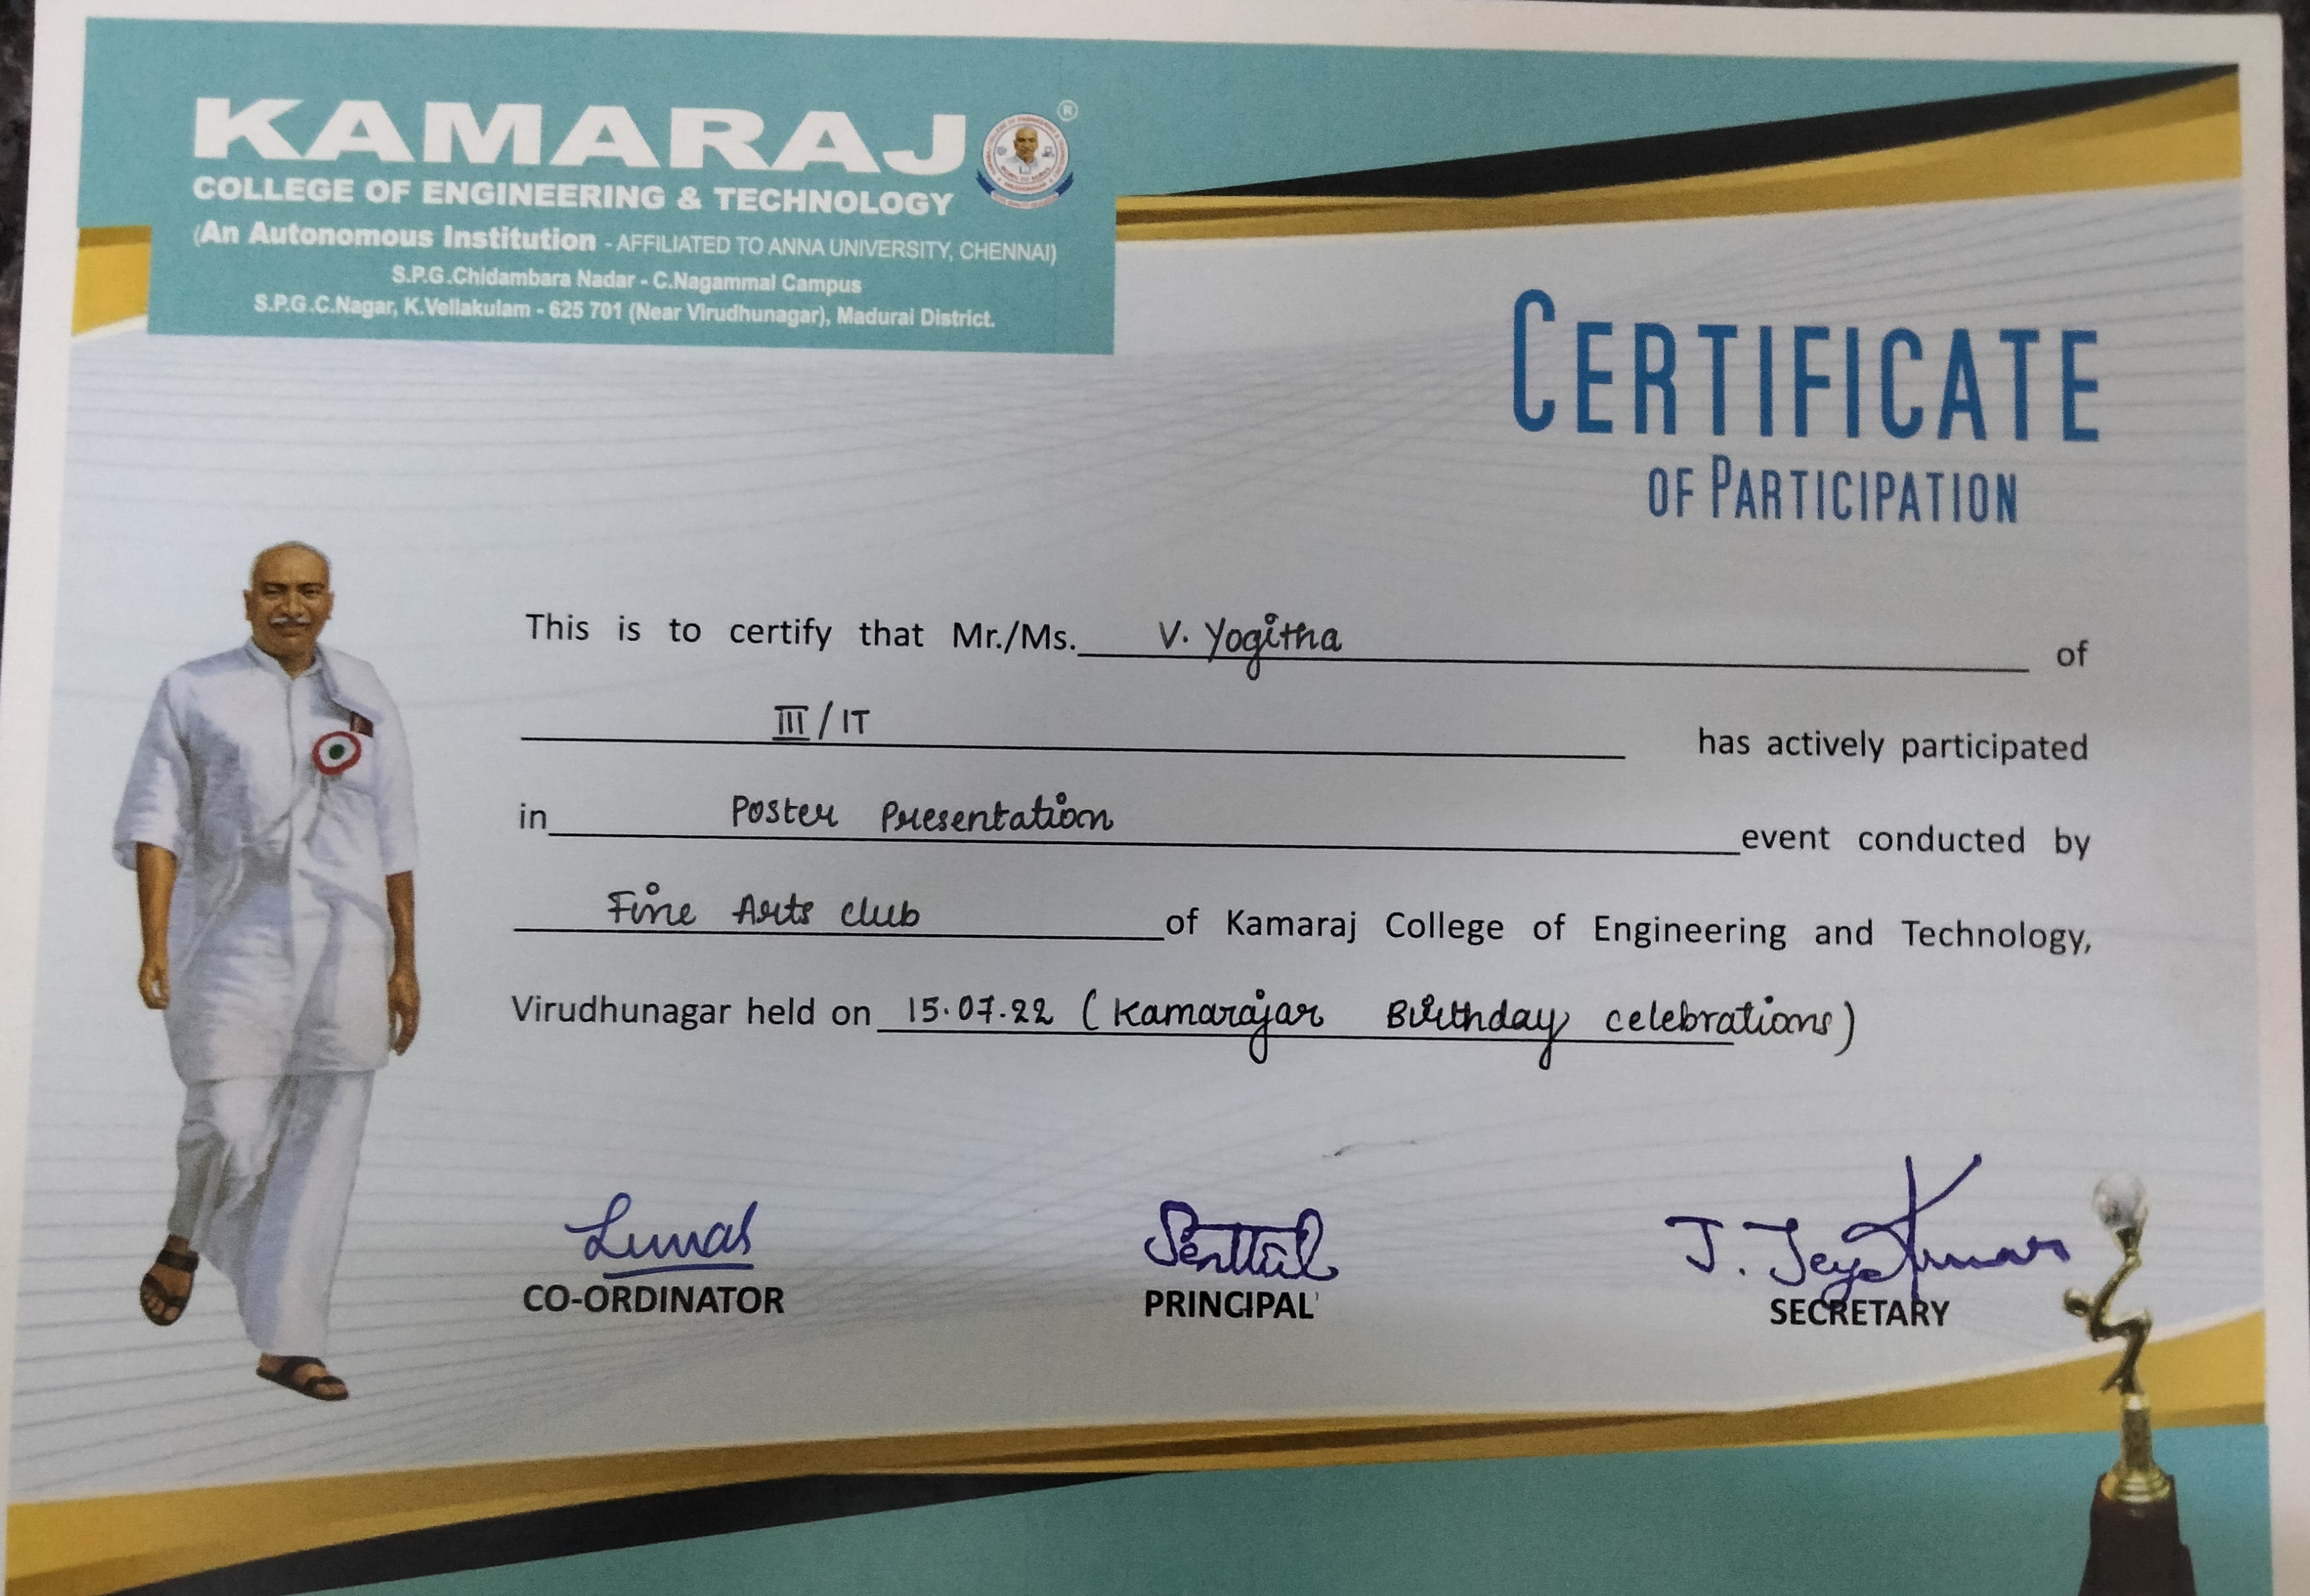 KAMARAJ
®
COLLEGE OF ENGINEERING & TECHNOLOGY
(An Autonomous Institution - AFFILIATED TO ANNA UNIVERSITY, CHENNAI)
S.P.G.Chidambara Nadar - C.Nagammal Campus
S.P.G.C.Nagar, K.Vellakulam - 625 701 (Near Virudhunagar), Madurai District.
CERTIFICATE
OF PARTICIPATION
This is to certify that Mr./Ms. V. Yogitha of
III / IT has actively participated
in Poster Presentation event conducted by
Fine Arts club of Kamaraj College of Engineering and Technology,
Virudhunagar held on 15.07.22 (Kamarajar Birthday celebrations)
J. Jeyakumar
CO-ORDINATOR PRINCIPAL SECRETARY